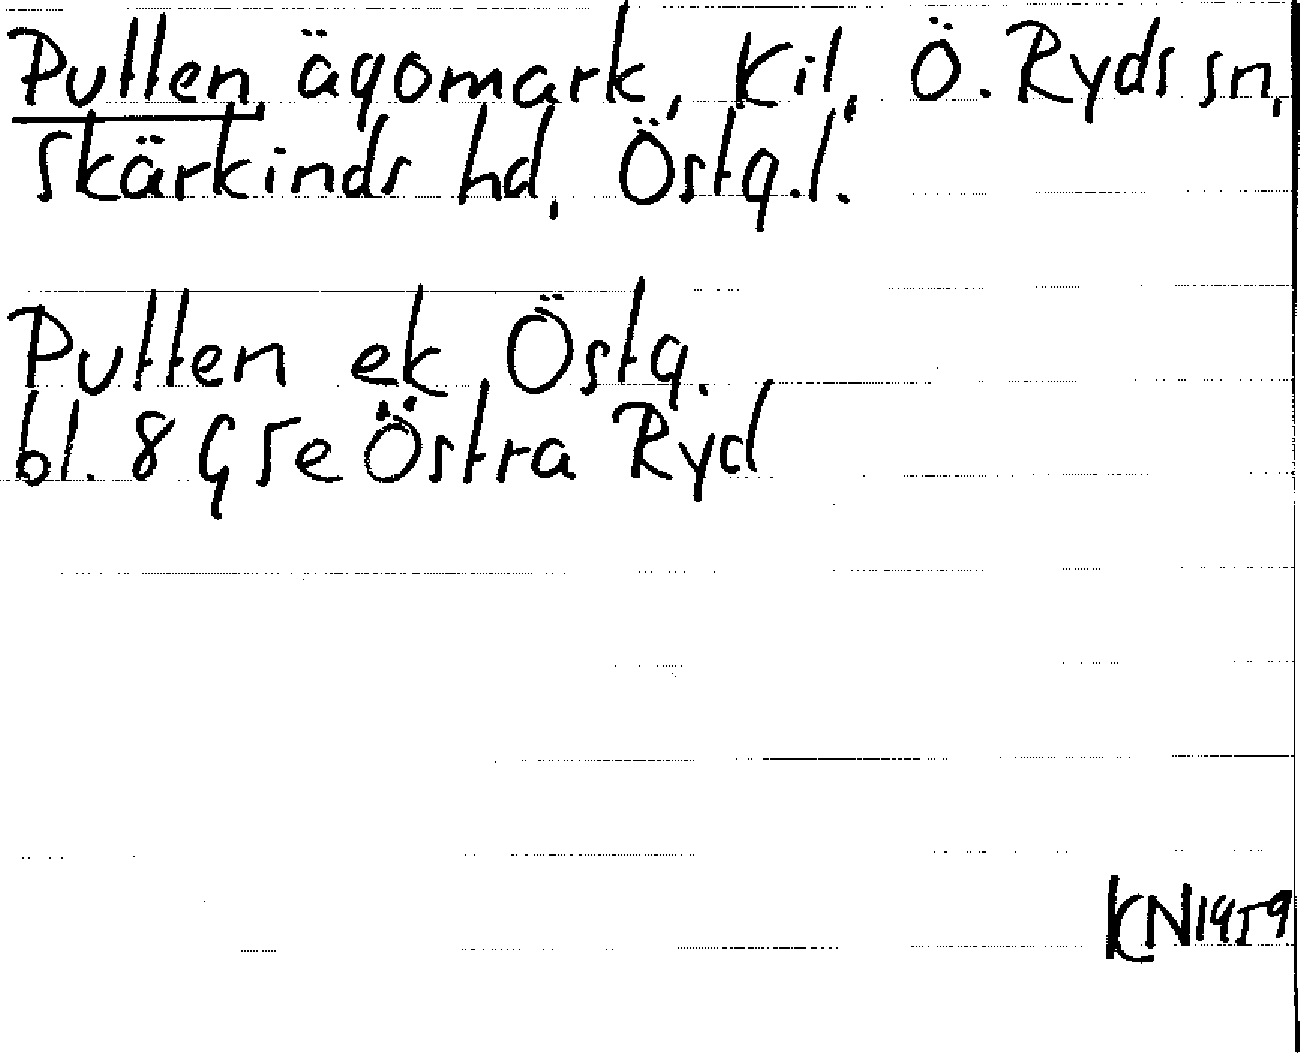 Pullen, ägomark, Kil, Ö. Ryds sn,
Skärkinds hd, Östg.l.
Putten ek Östg.
bl. 8 G 5e Östra Ryd
KN 1959